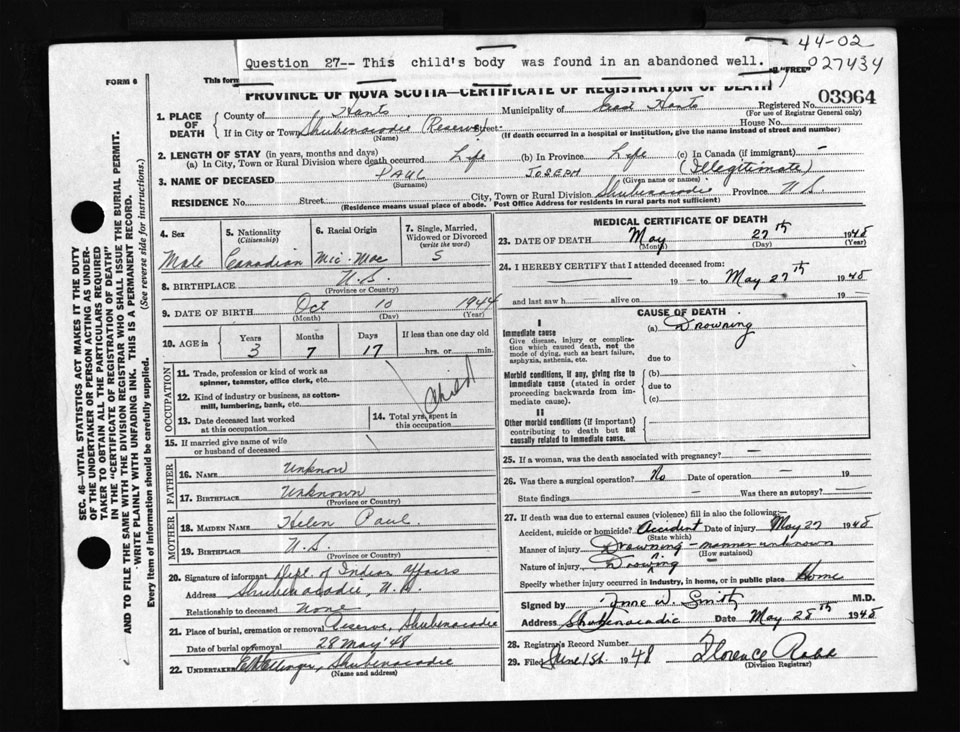 44-02
Question 27-- This child's body was found in an abandoned well.
027434
FORM 6
This form
"FREE"
PROVINCE OF NOVA SCOTIA—CERTIFICATE OF REGISTRATION OF DEATH
03964
1. PLACE OF DEATH
County of Hants
Municipality of East Hants
Registered No.
(For use of Registrar General only)
If in City or Town Shubenacadie (Reserve) Street
House No.
(Name)
(If death occurred in a hospital or institution, give the name instead of street and number)
2. LENGTH OF STAY (in years, months and days)
(a) In City, Town or Rural Division where death occurred Life (b) In Province Life (c) In Canada (if immigrant) -
3. NAME OF DECEASED PAUL JOSEPH (Illegitimate)
(Surname) (Given name or names)
RESIDENCE No. Street City, Town or Rural Division Shubenacadie Province N.S.
(Residence means usual place of abode. Post Office Address for residents in rural parts not sufficient)
4. Sex
Male
5. Nationality
(Citizenship)
Canadian
6. Racial Origin
Mic-Mac
7. Single, Married, Widowed or Divorced
(write the word)
S
8. BIRTHPLACE N.S.
(Province or Country)
9. DATE OF BIRTH Oct 10 1944
(Month) (Day) (Year)
10. AGE in
Years Months Days If less than one day old
3 7 17 hrs. or min.
OCCUPATION
11. Trade, profession or kind of work as spinner, teamster, office clerk, etc.
12. Kind of industry or business, as cotton-mill, lumbering, bank, etc.
Child
13. Date deceased last worked at this occupation
14. Total yrs. spent in this occupation
15. If married give name of wife or husband of deceased
FATHER
16. NAME Unknow
17. BIRTHPLACE Unknown
(Province or Country)
MOTHER
18. MAIDEN NAME Helen Paul
19. BIRTHPLACE N.S.
(Province or Country)
20. Signature of informant Dept. of Indian Affairs
Address Shubenacadie, N.S.
Relationship to deceased None
21. Place of burial, cremation or removal Reserve, Shubenacadie
Date of burial or removal 28 May '48
22. UNDERTAKER Shubenacadie
(Name and address)
MEDICAL CERTIFICATE OF DEATH
23. DATE OF DEATH May 27th 1948
(Month) (Day) (Year)
24. I HEREBY CERTIFY that I attended deceased from:
19 — to May 27th 1948
and last saw h alive on 19 —
CAUSE OF DEATH
I
Immediate cause (a) Drowning
Give disease, injury or complication which caused death, not the mode of dying, such as heart failure, asphyxia, asthenia, etc.
due to
Morbid conditions, if any, giving rise to immediate cause (stated in order proceeding backwards from immediate cause).
(b)
due to
(c)
II
Other morbid conditions (if important) contributing to death but not causally related to immediate cause.
25. If a woman, was the death associated with pregnancy? —
26. Was there a surgical operation? No Date of operation — 19 —
State findings — Was there an autopsy? —
27. If death was due to external causes (violence) fill in also the following:—
Accident, suicide or homicide? Accident Date of injury May 27 1948
(State which)
Manner of injury Drowning - manner unknown
(How sustained)
Nature of injury Drowning
Specify whether injury occurred in industry, in home, or in public place Home
Signed by W. Smith M.D.
Address Shubenacadie Date May 28th 1948
28. Registrar's Record Number
29. Filed June 1st. 1948 Florence
(Division Registrar)
SEC. 46—VITAL STATISTICS ACT MAKES IT THE DUTY
OF THE UNDERTAKER OR PERSON ACTING AS UNDER-
TAKER TO OBTAIN ALL THE PARTICULARS REQUIRED
IN THE "CERTIFICATE OF REGISTRATION OF DEATH"
AND TO FILE THE SAME WITH THE DIVISION REGISTRAR WHO SHALL ISSUE THE BURIAL PERMIT.
WRITE PLAINLY WITH UNFADING INK. THIS IS A PERMANENT RECORD.
Every item of information should be carefully supplied. (See reverse side for instructions.)